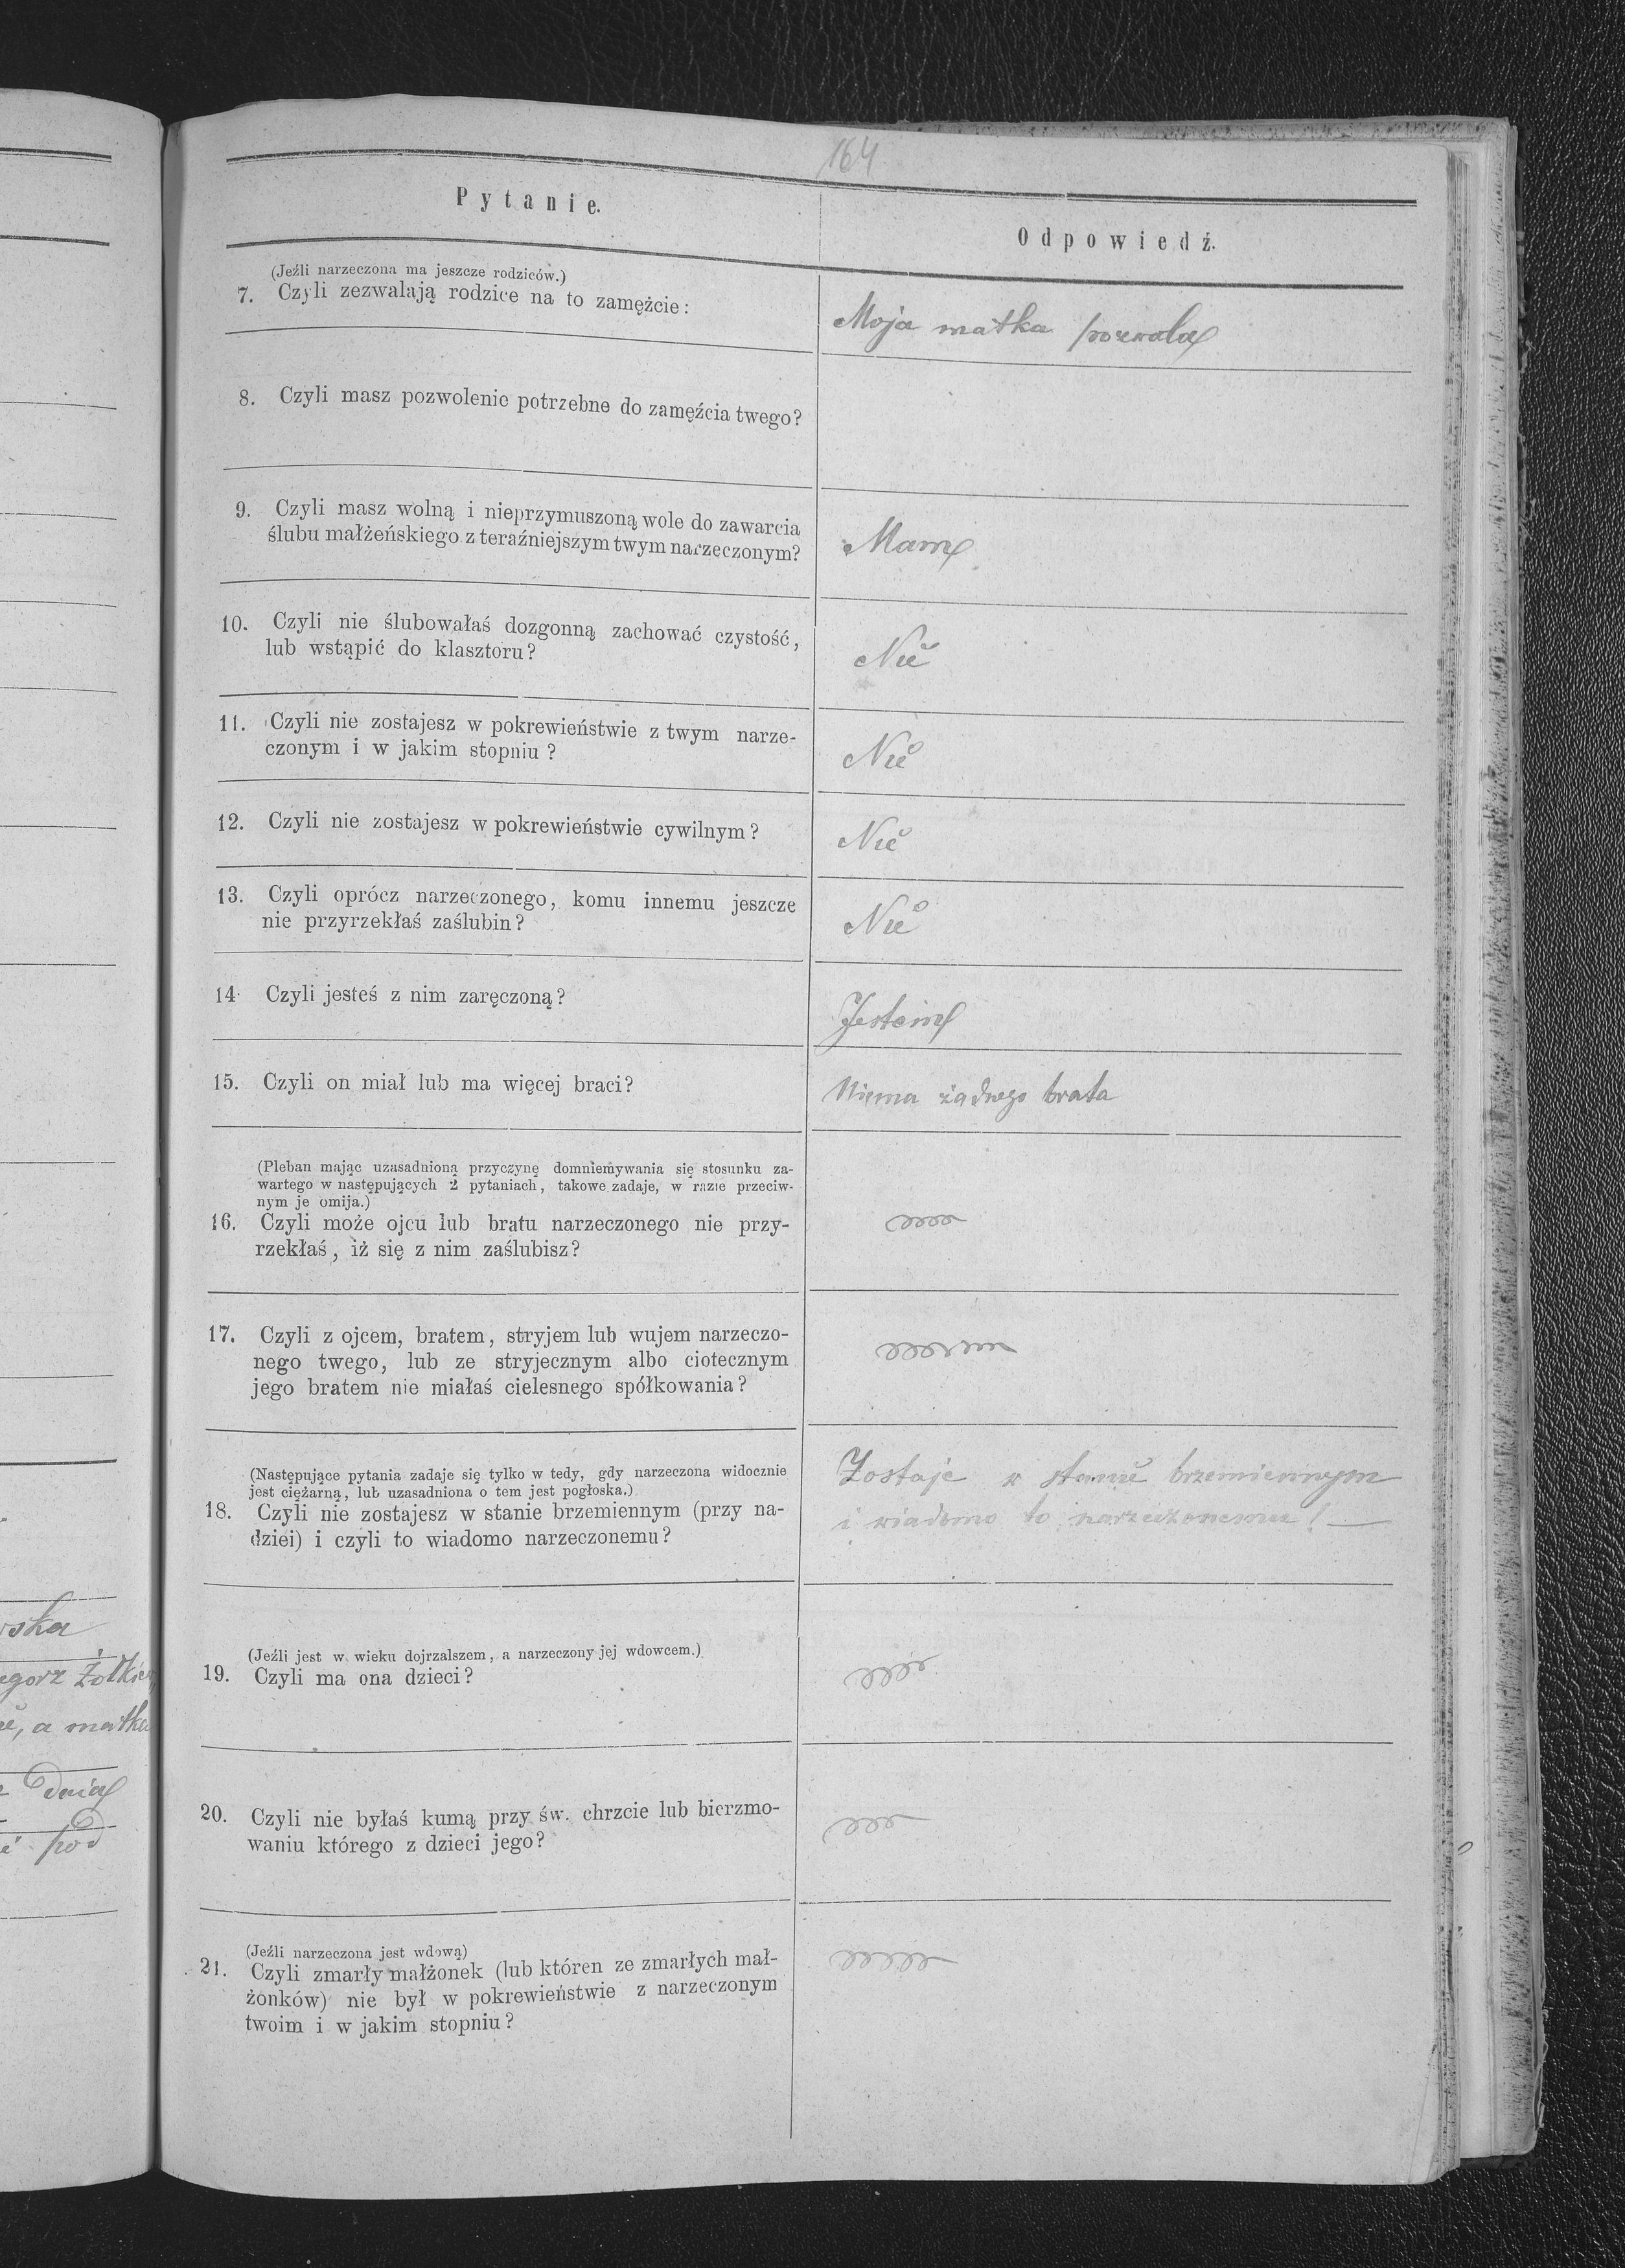 164
Pytanie.
Odpowiedź.
(Jeźli narzeczona ma jeszcze rodziców.)
7. Czyli zezwalają rodzice na to zamężcie:
Moja matka pozwala
8. Czyli masz pozwolenie potrzebne do zamęźcia twego?
9. Czyli masz wolną i nieprzymuszoną wole do zawarcia
ślubu małżeńskiego z teraźniejszym twym narzeczonym?
Mam
10. Czyli nie ślubowałaś dozgonną zachować czystość,
lub wstąpić do klasztoru?
Nie
11. Czyli nie zostajesz w pokrewieństwie z twym narze-
czonym i w jakim stopniu ?
Nie
12. Czyli nie zostajesz w pokrewieństwie cywilnym?
Nie
13. Czyli oprócz narzeczonego, komu innemu jeszcze
nie przyrzekłaś zaślubin?
Nie
14. Czyli jesteś z nim zaręczoną?
Jestem
15. Czyli on miał lub ma więcej braci?
Niema żadnego brata
(Pleban mając uzasadnioną przyczynę domniemywania się stosunku za-
wartego w następujących 2 pytaniach, takowe zadaje, w razie przeciw-
nym je omija.)
16. Czyli może ojcu lub bratu narzeczonego nie przy-
rzekłaś, iż się z nim zaślubisz?
17. Czyli z ojcem, bratem, stryjem lub wujem narzeczo-
nego twego, lub ze stryjecznym albo ciotecznym
jego bratem nie miałaś cielesnego spółkowania?
(Następujące pytania zadaje się tylko w tedy, gdy narzeczona widocznie
jest ciężarną, lub uzasadniona o tem jest pogłoska.)
18. Czyli nie zostajesz w stanie brzemiennym (przy na-
dziei) i czyli to wiadomo narzeczonemu?
Zostaje w stanie brzemiennym
i wiadomo to narzeczonemu! —
(Jeźli jest w wieku dojrzalszem, a narzeczony jej wdowcem.)
19. Czyli ma ona dzieci?
20. Czyli nie byłaś kumą przy św. chrzcie lub bierzmo-
waniu którego z dzieci jego?
(Jeźli narzeczona jest wdową)
21. Czyli zmarły małżonek (lub któren ze zmarłych mał-
żonków) nie był w pokrewieństwie z narzeczonym
twoim i w jakim stopniu?
, a matka
dnia
pod